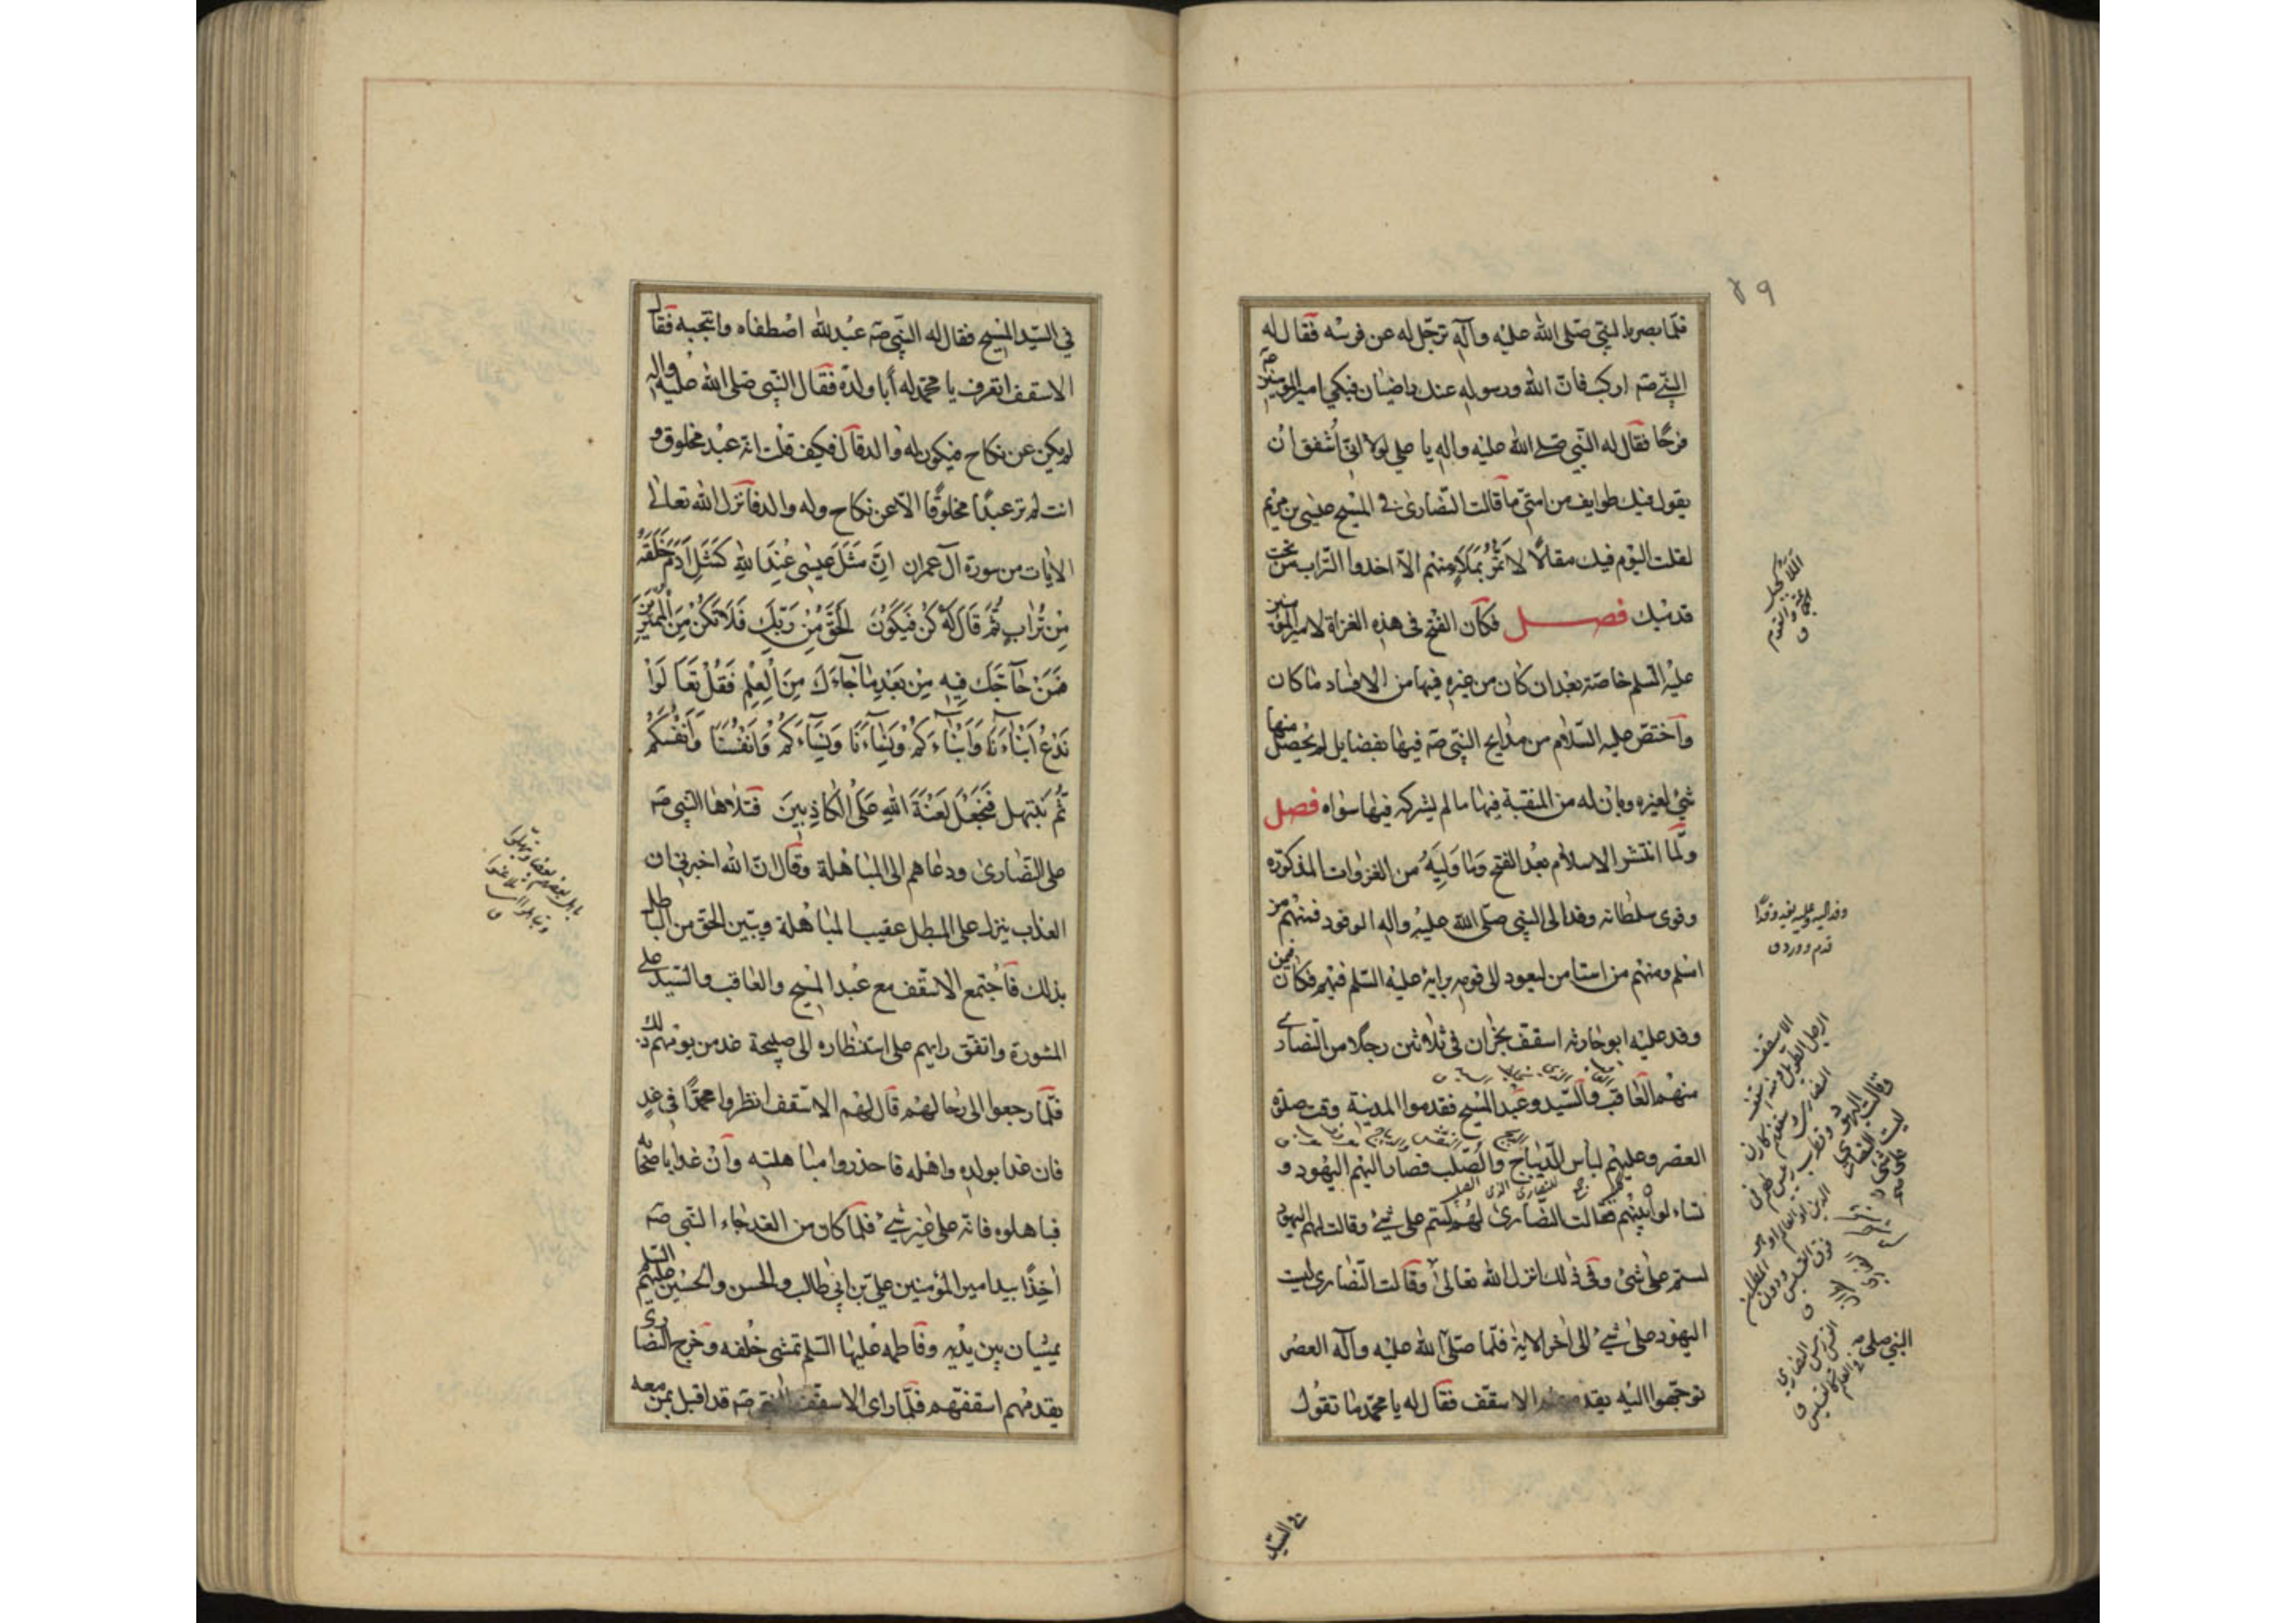 ٧٩
فلما بصر بالنبي صلى الله عليه وآله ترجل له عن فرسه فقال له
النبي صه اركب فان الله ورسوله عنك راضيان فبكى امير المؤمنين
فرحًا فقال له النبي صلى الله عليه واله يا علي لولا انني أشفق أن
يقول فيك طوايف من امتي ما قالت النصارى في المسيح عيسى بن مريم
لقلت اليوم فيك مقالًا لا تمر بملاء منهم الا اخذوا التراب من تحت
قدميك فصل فكان الفتح في هذه الغزاة لامير المؤمنين
عليه السلم خاصة بعد ان كان من غيره فيها من الافساد ما كان
واختص عليه السلام من مدايح النبي صه فيها بفضايل لم يحصل منها
شئ لغيره وبان له من المنقبة فيها ما لم يشركه فيها سواه فصل
ولما انتشر الاسلام بعد الفتح وما وليه من الغزوات المذكورة
وقوى سلطانه وفد الى النبي صلى الله عليه واله الوفود فمنهم من
اسلم ومنهم من استامن ليعود الى قومه برايه عليه السلم فيهم فكان فيمن
وفد عليه ابو حارثه اسقف نجران في ثلاثين رجلا من النصارى
منهم العاقب والسيد وعبد المسيح فقدموا المدينة وقت صلوة
العصر وعليهم لباس الديباج والصلب فصار اليهم اليهود و
تساءلوا بينهم فقالت النصارى لهم لستم على شئ وقالت لهم اليهود
لستم على شئ وفي ذلك انزل الله تعالى وقالت النصارى ليست
اليهود على شئ الى اخر الاية فلما صلى الله عليه وآله العصر
توجهوا اليه يقدمهم الاسقف فقال له يا محمد ما تقول
وفد اليه وعليه يفد وفدًا
قدم وورد ق
في السيد
في السيد المسيح فقال له النبي صه عبد لله اصطفاه وانتجبه فقال
الاسقف اتعرف يا محمد له أبا ولده فقال النبي صلى الله عليه واله
لم يكن عن نكاح فيكون له والد قال فكيف قلت انه عبد مخلوق و
انت لم تر عبدًا مخلوقًا الا عن نكاح وله والد فانزل الله تعالى
الايات من سورة آل عمران إِنَّ مَثَلَ عِيسٰى عِنْدَ اللهِ كَمَثَلِ اٰدَمَ خَلَقَهُ
مِنْ تُرَابٍ ثُمَّ قَالَ لَهُ كُنْ فَيَكُوْنُ الْحَقُّ مِنْ رَبِّكَ فَلَا تَكُنْ مِنَ الْمُمْتَرِينَ
فَمَنْ حَاجَّكَ فِيهِ مِنْ بَعْدِ مَا جَاءَكَ مِنَ الْعِلْمِ فَقُلْ تَعَالَوْا
نَدْعُ اَبْنَاءَنَا وَاَبْنَاءَكُمْ وَنِسَاءَنَا وَنِسَاءَكُمْ وَاَنْفُسَنَا وَاَنْفُسَكُمْ
ثُمَّ نَبْتَهِل فَنَجْعَلْ لَعْنَةَ اللهِ عَلَى الْكَاذِبِينَ فتلاها النبي صه
على النصارى ودعاهم الى المباهلة وقال ان الله اخبرني ان
العذاب ينزل على المبطل عقيب المباهلة ويبين الحق من الباطل
بذلك فاجتمع الاسقف مع عبد المسيح والعاقب والسيد على
المشورة واتفق رايهم على استنظاره الى صبيحة غد من يومهم ذلك
فلما رجعوا الى رحالهم قال لهم الاسقف انظروا محمدًا في غدٍ
فان غدا بولده واهله فاحذروا مباهلته وان غدا باصحابه
فباهلوه فانه على غير شئ فلما كان من الغد جاء النبي صه
اخذًا بيد امير المؤمنين علي بن ابي طالب والحسن والحسين عليهم السلم
يمشيان بين يديه وفاطمه عليها السلم تمشى خلفه وخرج النصارى
يقدمهم اسقفهم فلما راى الاسقف النبي صه قد اقبل بمن معه